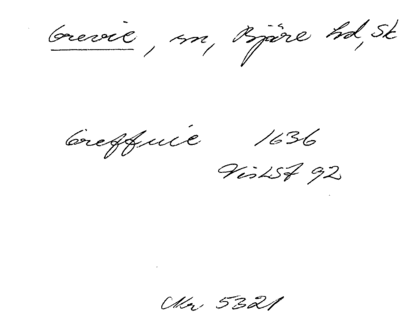 Grevie, sn, Bjäre hd, Sk
Greffuie 1636
VisLSt 92
Ner 5321